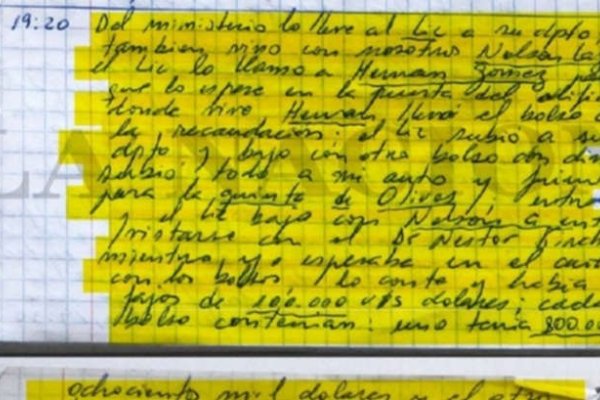 19:20 Del ministerio lo lleve al Lic a su dpto
tambien vino con nosotros Nelson
el Lic lo llamo a Hernan Gomez
que lo espere en la puerta del
donde vive Hernan llevó el bolso
la recaudacion: el Lic subio a su
dpto y bajo con otro bolso con
subió todo a mi auto y
para la quinta de Olivos,
y el Lic bajo con Nelson a
con el Dr Nestor
mientras yo esperaba en el
con los bolsos, lo conte y habia
fajos de 100.000 U$S dolares; cada
bolso contenian: uno tenia 800.0
ochociento mil dolares y el otro
LA NACION